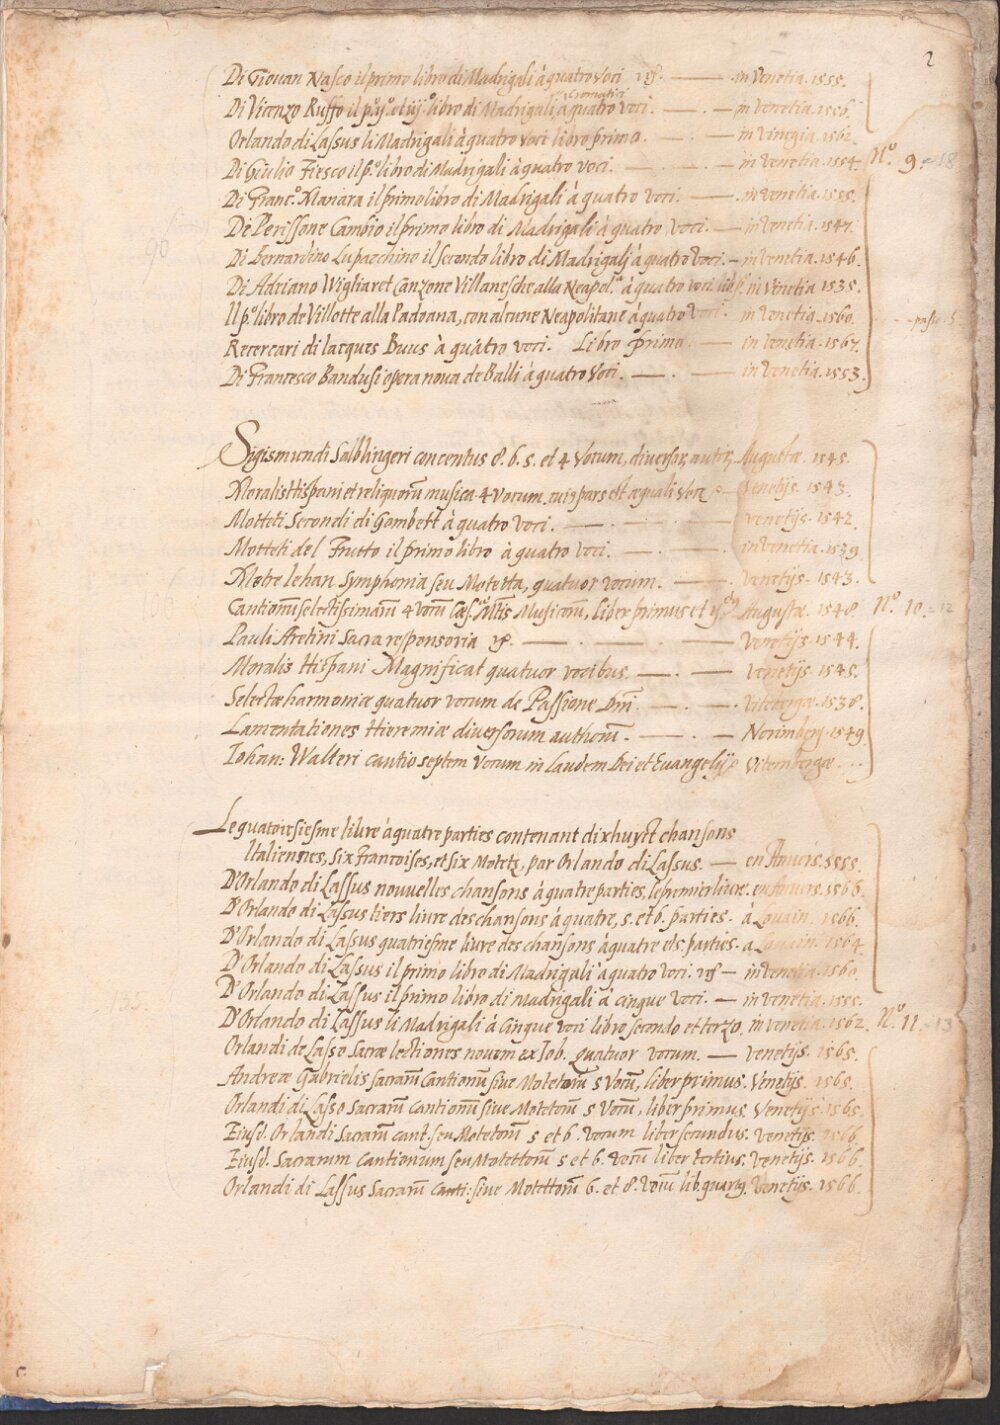 2
Di Giouan Nasco il primo libro di Madrigali à quatro voci — in Venetia. 1555.
cromatici
Di Vicenzo Ruffo il p.º ij.º et iij.º libro di Madrigali à quatro voci. — in Venetia. 1556.
Orlando di Lassus li Madrigali à quatro voci libro primo. — in Vinegia. 1562.
Di Giulio Fiesco il p.º libro di Madrigali à quatro voci. — in Venetia. 1554. Nº. 9. = 18
Di Franc.º Manara il primo libro di Madrigali à quatro voci. — in Venetia. 1555.
De Perissone Cambio il primo libro di Madrigali à quatro voci. — in Venetia. 1547.
Di Bernardino Lupacchino il secondo libro di Madrigali à quatro voci. — in Venetia. 1546.
Di Adriano Wigliaret Canzone Villanesche alla Neapol.ª à quatro voci in Venetia 1535.
Il p.º libro de Villotte alla Padoana, con alcune Neapolitane à quatro voci. in Venetia. 1560.
Recercari di Iacques Buus à quatro voci. Libro primo. — in Venetia. 1567.
Di Francesco Bandusi opera noua de Balli à quatro voci. — in Venetia. 1553.
Sigismundi Salblingeri concentus 8. 6. 5. et 4 Vocum, diuersor autor Augustæ. 1545.
Moralis Hispani et reliquorū musica 4 Vocum, cuius pars est æquali voce — Venetijs. 1543.
Motteti Secondi di Gombett à quatro voci. — venetijs. 1542.
Motteti del Frutto il primo libro à quatro voci. — in Venetia. 1539.
Metre Iehan Symphonia seu Motetta, quatuor vocum. — Venetijs. 1543.
Cantionū selectissimarū 4 vocū Cæs. Mtis Musicorū, Liber primus et ij.dus Augustæ. 1548. Nº. 10. = 12
Pauli Aretini Sacra responsoria — Venetijs 1544.
Moralis Hispani Magnificat quatuor vocibus. — venetijs. 1545.
Selectæ harmoniæ quatuor vocum de Passione Dni. — Vitebergæ. 1538.
Lamentationes Hieremiæ diuersorum authorū. — Norimberg. 1549.
Iohan: Walteri cantio septem Vocum in laudem Dei et Euangelij Vitembergæ . . .
Le quatoirsiesme liure à quatre parties contenant dixhuyct chansons
Italiennes, six Francoises, et six Motetz, par Orlando di Lassus. — en Anuers. 1555.
D'Orlando di Lassus nouuelles chansons à quatre parties, le premier liure. en Anuers. 1566.
D'Orlande di Lassus tiers liure des chansons à quatre, 5. et 6. parties. à Louain. 1566.
D'Orlando di Lassus quatriesme liure des chansons à quatre et 5. parties. a Louain. 1564.
D'Orlando di Lassus il primo libro di Madrigali à quatro voci. — in Venetia. 1560.
D'Orlando di Lassus il primo libro di Madrigali à cinque voci. — in Venetia. 1555.
D'Orlando di Lassus li Madrigali à Cinque voci libro secondo et terzo. in Venetia. 1562. Nº. 11. = 13
Orlandi de Lasso Sacræ lectiones nouem ex Iob. Quatuor vocum. — Venetijs. 1565.
Andreæ Gabrielis sacrarū Cantionū siue Motetorū 5 Vocū, liber primus. Venetijs. 1565.
Orlandi di Lasso Sacrarū Cantionū siue Motetorū 5 Vocū, liber primus. Venetijs. 1565.
Eiusd. Orlandi Sacrarū cant. seu Motetorū 5 et 6. vocum liber secundus. venetijs. 1566.
Eiusd. Sacrarum Cantionum seu Motettorū 5 et 6. vocū liber tertius. Venetijs. 1566.
Orlandi di Lassus Sacrarū Canti: siue Motettorū 6. et 8. vocū lib. quartus. Venetijs. 1566.